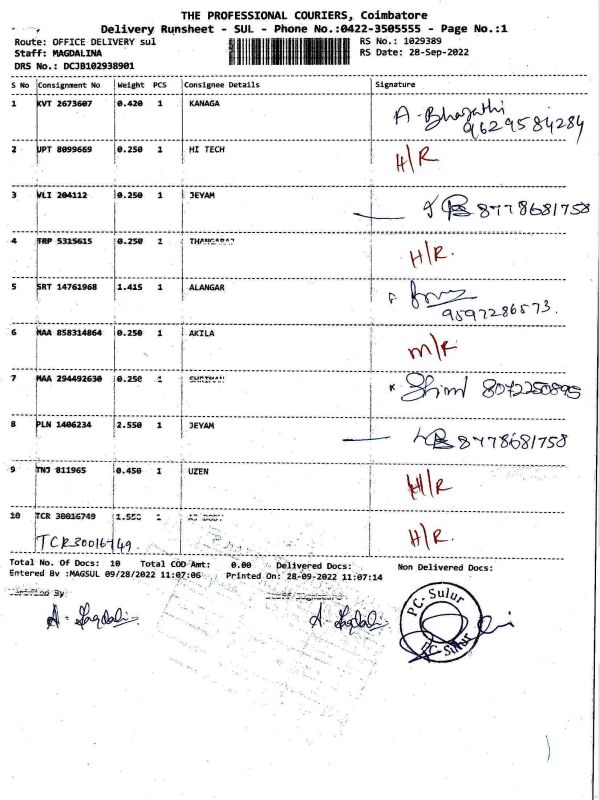 THE PROFESSIONAL COURIERS, Coimbatore
Delivery Runsheet - SUL - Phone No.:0422-3505555 - Page No.:1
Route: OFFICE DELIVERY sul
RS No.: 1029389
Staff: MAGDALINA
RS Date: 28-Sep-2022
DRS No.: DCJB102938901
S No Consignment No Weight PCS Consignee Details Signature
1 KVT 2673607 0.420 1 KANAGA A. Bhagathi
9629584284
2 UPT 8099669 0.250 1 HI TECH H/R
3 VLI 204112 0.250 1 JEYAM 8778681758
4 TRP 5315615 0.250 1 THANGARAJ H/R.
5 SRT 14761968 1.415 1 ALANGAR
9597286573.
6 MAA 858314864 0.250 1 AKILA M/R
7 MAA 294492630 0.250 1 8072250895
8 PLN 1406234 2.550 1 JEYAM 8778681758
9 TNJ 811965 0.450 1 UZEN H/R
10 TCR 30016749 1.550 1 H/R
TCR30016749.
Total No. Of Docs: 10 Total COD Amt: 0.00 Delivered Docs: Non Delivered Docs:
Entered By :MAGSUL 09/28/2022 11:07:06 Printed On: 28-09-2022 11:07:14
PC-Sulur
PC-Sulur